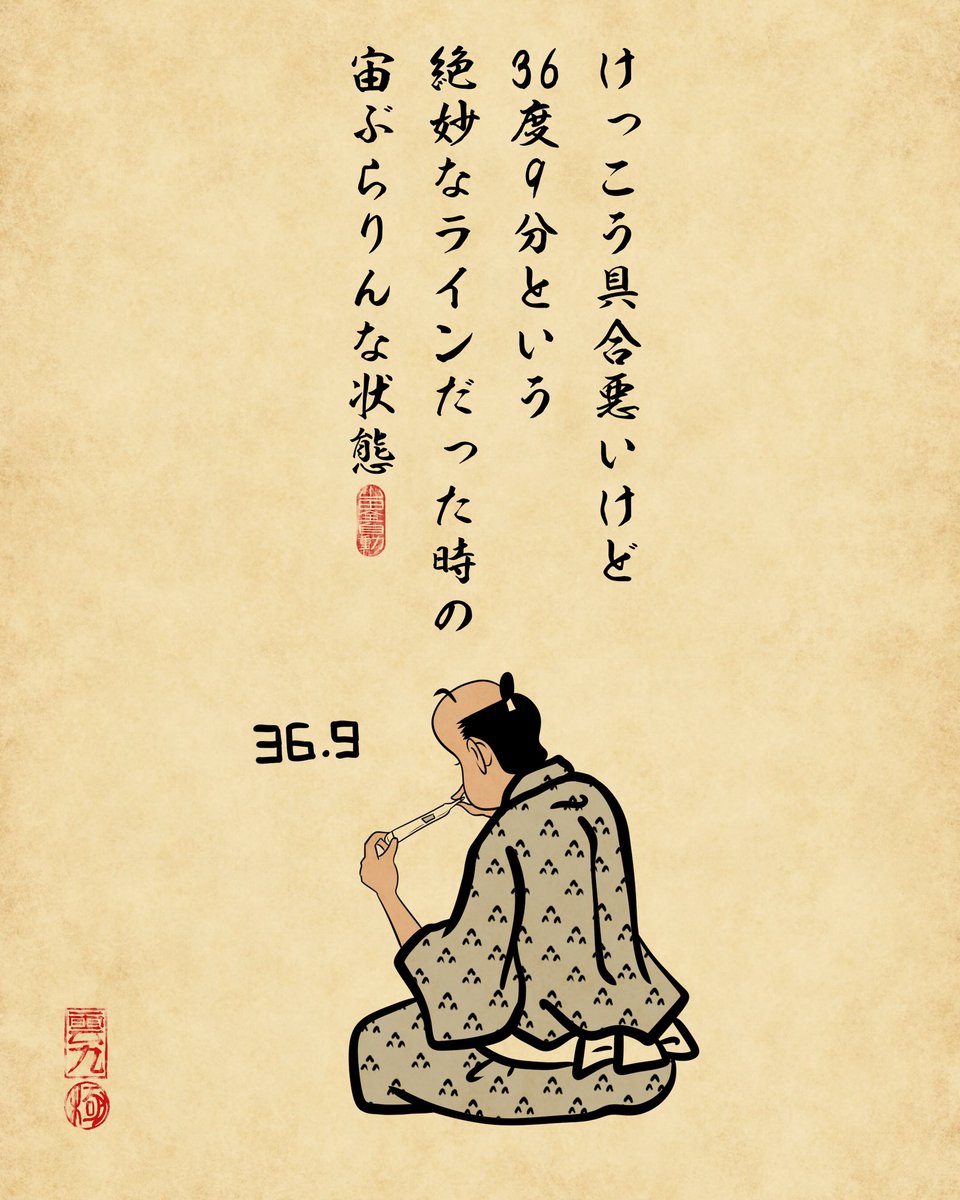 けっこう具合悪いけど
36度9分という
絶妙なラインだった時の
宙ぶらりんな状態
36.9